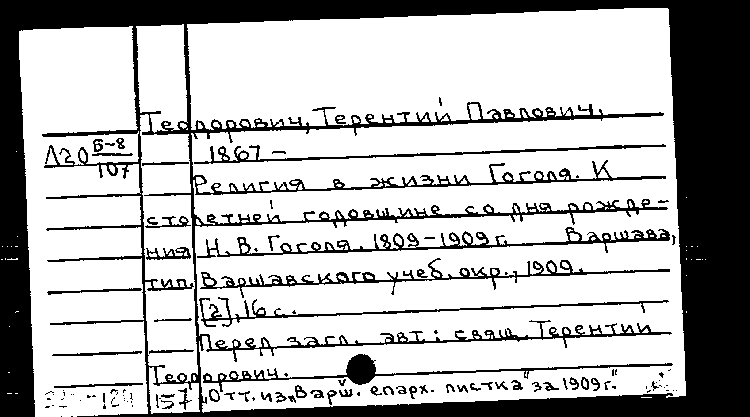 Теодорович, Терентий Павлович,
Л20 Б-8/107 1867 –
Религия в жизни Гоголя. К
столетней годовщине со дня рожде-
ния Н. В. Гоголя. 1809-1909 г. Варшава,
тип. Варшавского учеб. окр., 1909.
[2], 16 с.
Перед загл. авт.: свящ. Терентий
Теодорович.
157 "Отт. из „Варш. епарх. листка" за 1909 г."